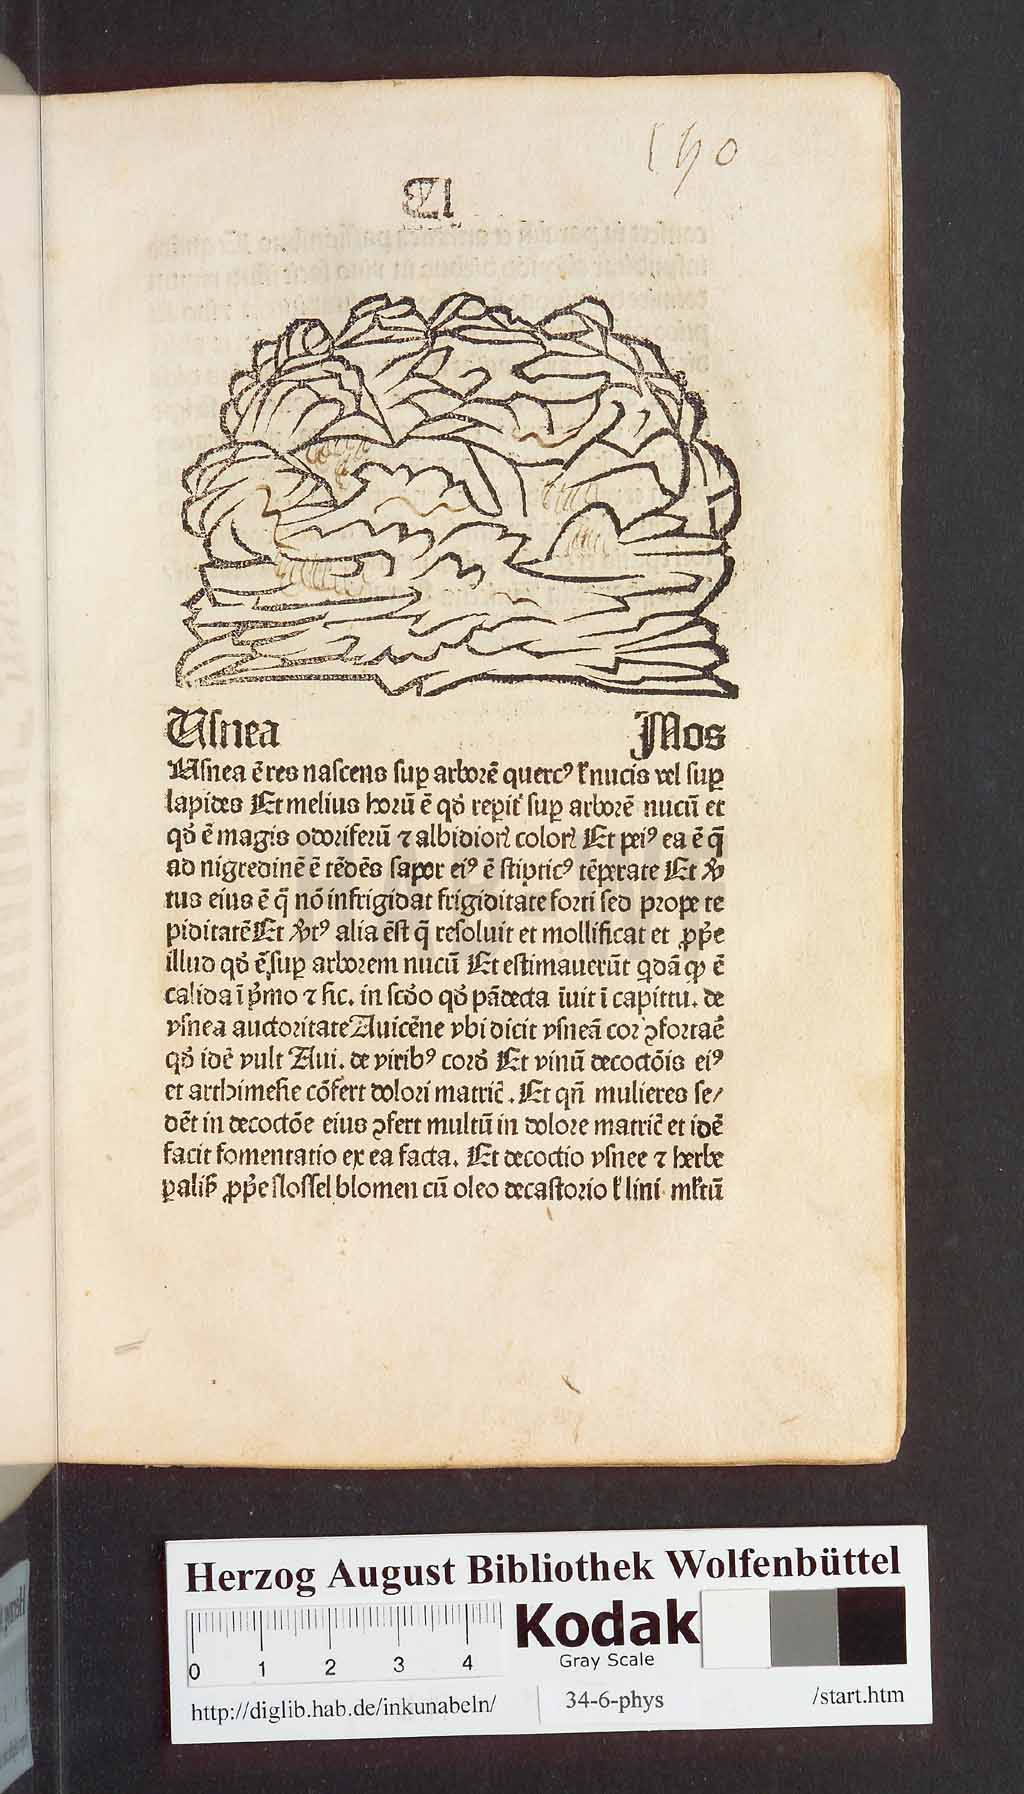 150
Usnea Mos
Usnea ē res nascens suꝑ arborē quercꝰ ł nucis vel suꝑ
lapides Et melius horū ē qđ reꝑit᷑ suꝑ arborē nucū et
qđ ē magis odoriferū ⁊ albidiorꝭ colorꝭ Et peiꝰ ea ē q̄
ad nigredinē ē tēdēs sapor eiꝰ ē stipticꝰ tēperate Et v̓
tus eius ē q̄ nō infrigidat frigiditate forti sed prope te
piditatē Et v̓tꝰ alia ēst q̄ resoluit et mollificat et ꝓp̓e
illud qđ ē suꝑ arborem nucū Et estimauerūt qͥdā ꝙ ē
calida ī p̓mo ⁊ sic. in scđo qđ pādecta īuit ī capittu. de
vsnea auctoritate Auicēne vbi dicit vsneā cor ꝯfortaē
qđ idē vult Aui. de viribꝰ corđ Et vinū decoctōis eiꝰ
et arthimesie cōfert dolori matric̄. Et qn̄ mulieres se/
dēt in decoctōe eius ꝯfert multū in dolore matric̄ et idē
facit fomentatio ex ea facta. Et decoctio vsnee ⁊ herbe
ꝑaliß ꝓp̓e slossel blomen cū oleo decastorio ł lini mł̓tū
Herzog August Bibliothek Wolfenbüttel
0 1 2 3 4
Kodak
Gray Scale
http://diglib.hab.de/inkunabeln/ 34-6-phys /start.htm